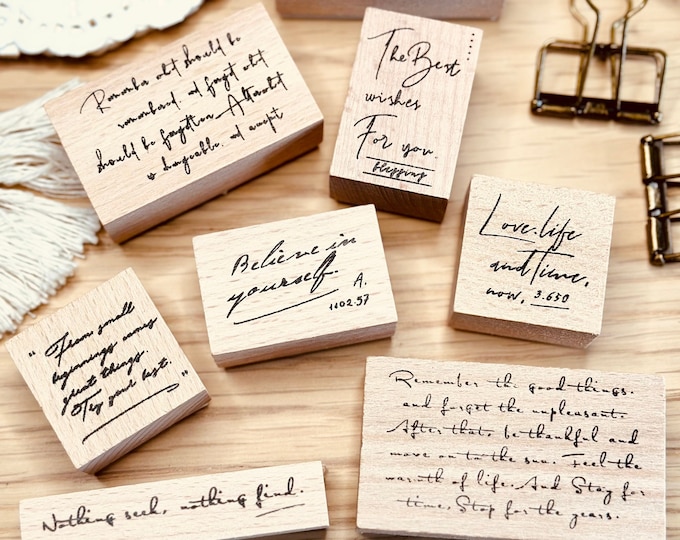 Remember what should be
remembered, and forget what
should be forgotten. Alter what
is changeable, and accept
The Best
wishes
For you.
blessing
Believe in
yourself.
A.
1102.57
Love.life
and Time,
now, 3.650
"From small
beginnings comes
great things.
Try your best."
Remember the good things.
and forget the unpleasant.
After that, be thankful and
move on to the sun. Feel the
warmth of life. And Stay for
time, Stop for the years.
Nothing seek, nothing find.